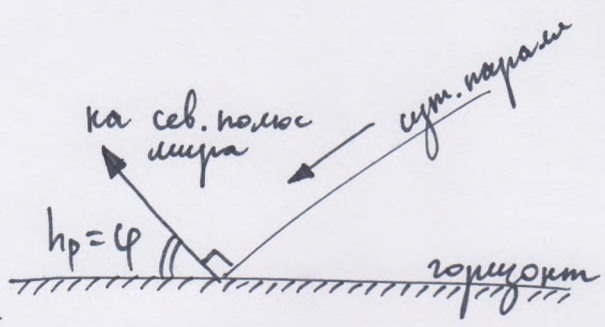 на сев. полюс
мира
сут. паралл
hp = φ
горизонт